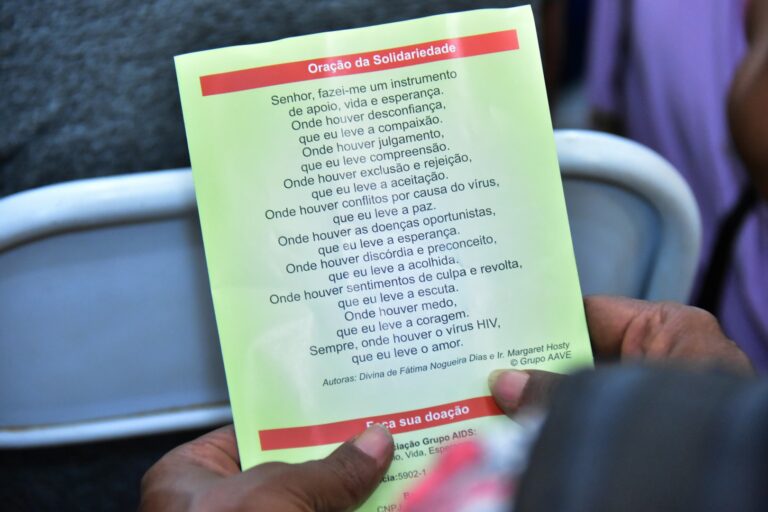 Oração da Solidariedade
Senhor, fazei-me um instrumento
de apoio, vida e esperança.
Onde houver desconfiança,
que eu leve a compaixão.
Onde houver julgamento,
que eu leve compreensão.
Onde houver exclusão e rejeição,
que eu leve a aceitação.
Onde houver conflitos por causa do vírus,
que eu leve a paz.
Onde houver as doenças oportunistas,
que eu leve a esperança.
Onde houver discórdia e preconceito,
que eu leve a acolhida.
Onde houver sentimentos de culpa e revolta,
que eu leve a escuta.
Onde houver medo,
que eu leve a coragem.
Sempre, onde houver o vírus HIV,
que eu leve o amor.
Autoras: Divina de Fátima Nogueira Dias e Ir. Margaret Hosty
© Grupo AAVE
Faça sua doação
Grupo AIDS:
Vida,
5902-1